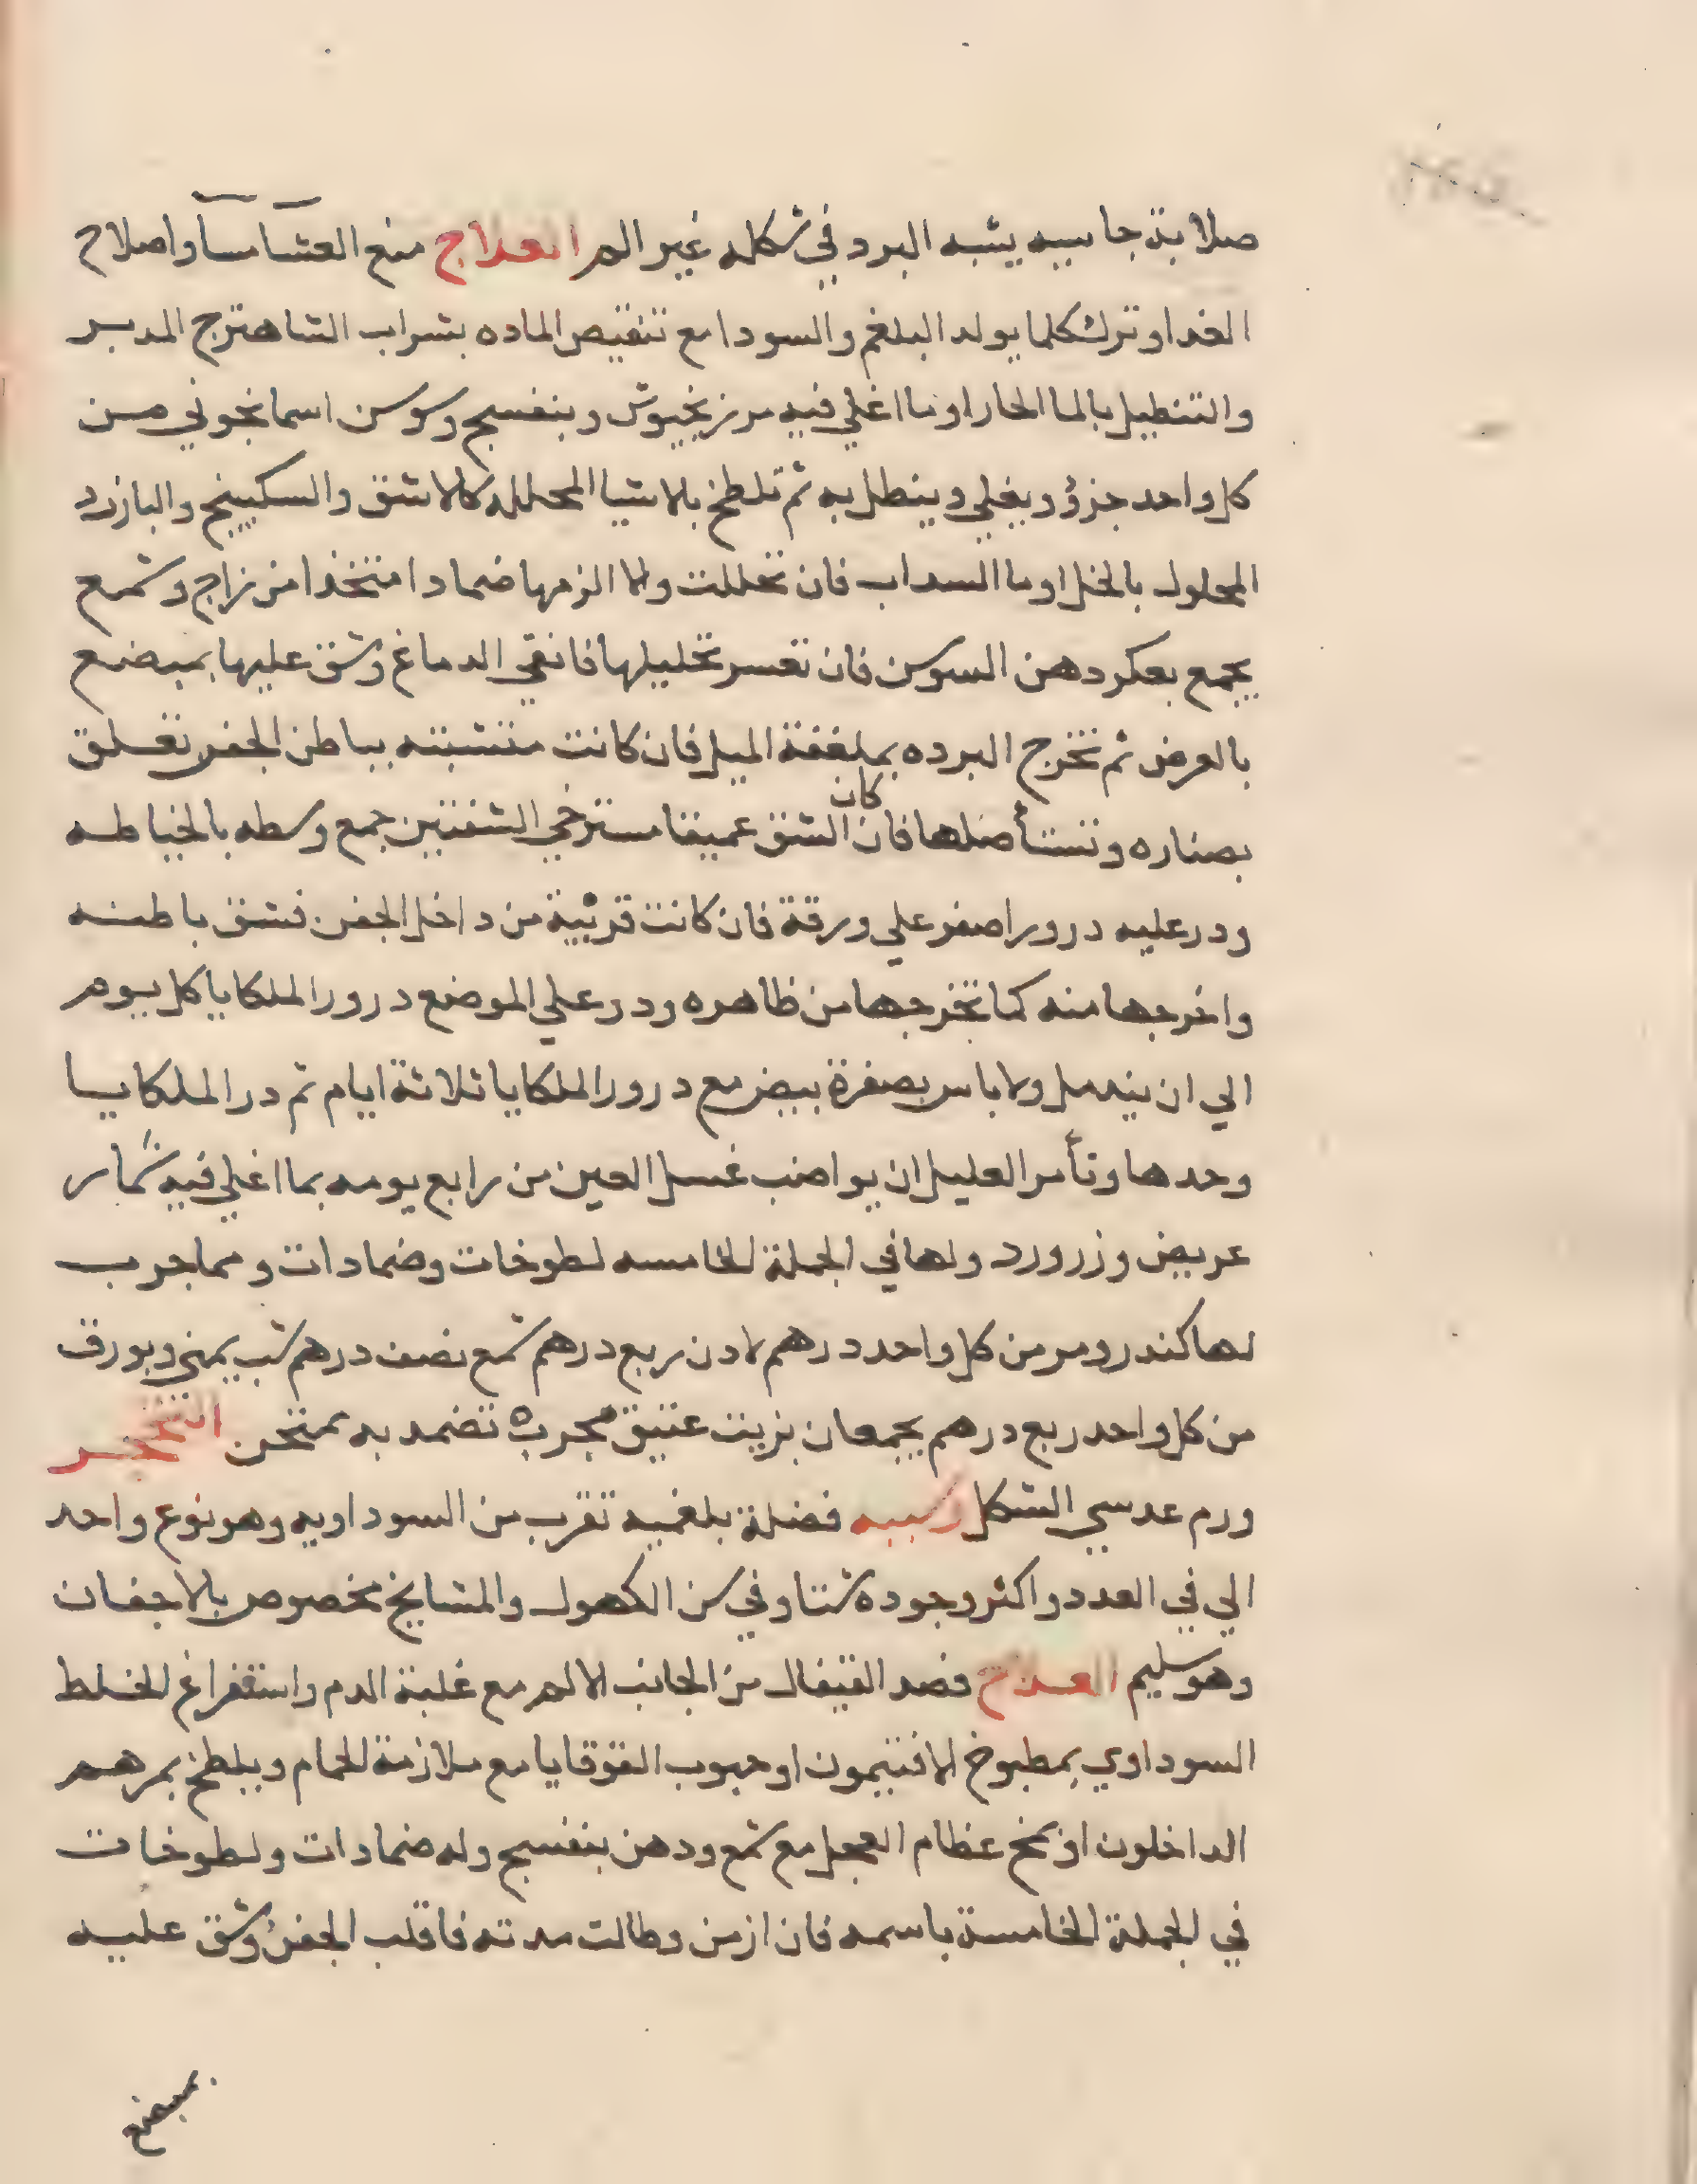 صلابة جاسيه يشبه البرد في شكله غير الم العلاج منع العشا مسآ واصلاح
الغدا وترك كلما يولد البلغم والسودا مع تنقيص الماده بشراب الشاهترج المدبر
والتنطيل بالما الحار او ما اغلي فيه مرزنجيوش وبنفسج وسوسن اسمانجوني من
كل واحد جزؤ ويغلي وينطل به ثم تلطخ بالاشيا المحلله كالاشق والسكبينج والبازرد
المحلول بالخل او ما السداب فان تحللت والا الزمها ضمادا متخذا من زاج وشمع
يجمع بعكر دهن السوسن فان تعسر تحليلها فانقي الدماغ وشق عليها بمبضع
بالعرض ثم تخرج البرده بملعقة الميل فان كانت متشبته بباطن الجفن تعلق
بصناره وتستأصلها فان كان الشق عميقا مسترخي الشفتين جمع وسطه بالخياطه
ودر عليه درورا اصفر علي ورقة فان كانت قريبة من داخل الجفن فشق باطنه
واخرجها منه كما تخرجها من ظاهره ودر علي الموضع درور الملكايا كل يوم
الي ان يندمل ولا باس بصفرة بيض مع درور الملكايا ثلاثة ايام ثم در الملكايا
وحدها وتأمر العليل ان يواضب غسل العين من رابع يومه بما اغلي فيه شمار
عريض وزرورد ولها في الجملة الخامسه لطوخات وضمادات ومما جرب
لها كندر ومر من كل واحد درهم لادن ربع درهم شمع نصف درهم شب يمني وبورق
من كل واحد ربع درهم يجمعان بزيت عتيق مجربه تضمد به ممتحن التحجر
ورم عدسي الشكل وسببه فضلة بلغميه تقرب من السوداويه وهو نوع واحد
الي في العدد واكثر وجوده شتا وفي سن الكهول والمشايخ مخصوص بالاجفان
وهو سليم العلاج فصد القيفال من الجانب الالم مع غلبة الدم واستفراغ الخلط
السوداوي بمطبوخ الافتيمون او حبوب القوقايا مع ملازمة الحمام ويلطخ بمرهم
الداخلون او بمخ عظام العجل مع شمع ودهن بنفسج وله ضمادات ولطوخات
في الجملة الخامسة باسمه فان ازمن وطالت مدته فاقلب الجفن وشق عليه
بمبضع